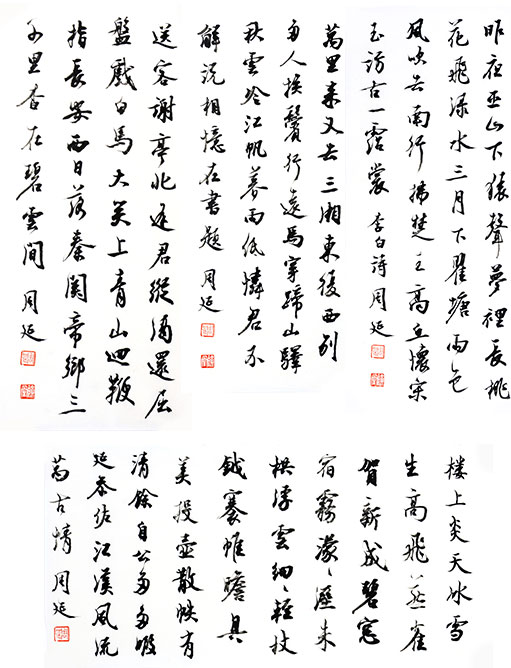 昨夜巫山下猿聲夢裡長桃
花飛渌水三月下瞿塘雨色
風吹去南行拂楚王高丘懷宋
玉訪古一霑裳 李白詩 周延
萬里來又去三湘東復西別
多人換鬢行遠馬穿蹄山驛
秋雲冷江帆暮雨低憐君不
解說相憶在書題 周延
送客謝亭北逢君縱酒還屈
盤戲白馬大笑上青山迴鞭
指長安西日落秦關帝鄉三
千里杳在碧雲間 周延
楼上炎天冰雪
生高飛燕雀
賀新成碧窓
宿霧濛〻溼朱
栱浮雲細〻輕杖
鉞褰帷瞻具
美投壺散帙有
清餘自公多多暇
延參佐江漢風流
萬古情 周延